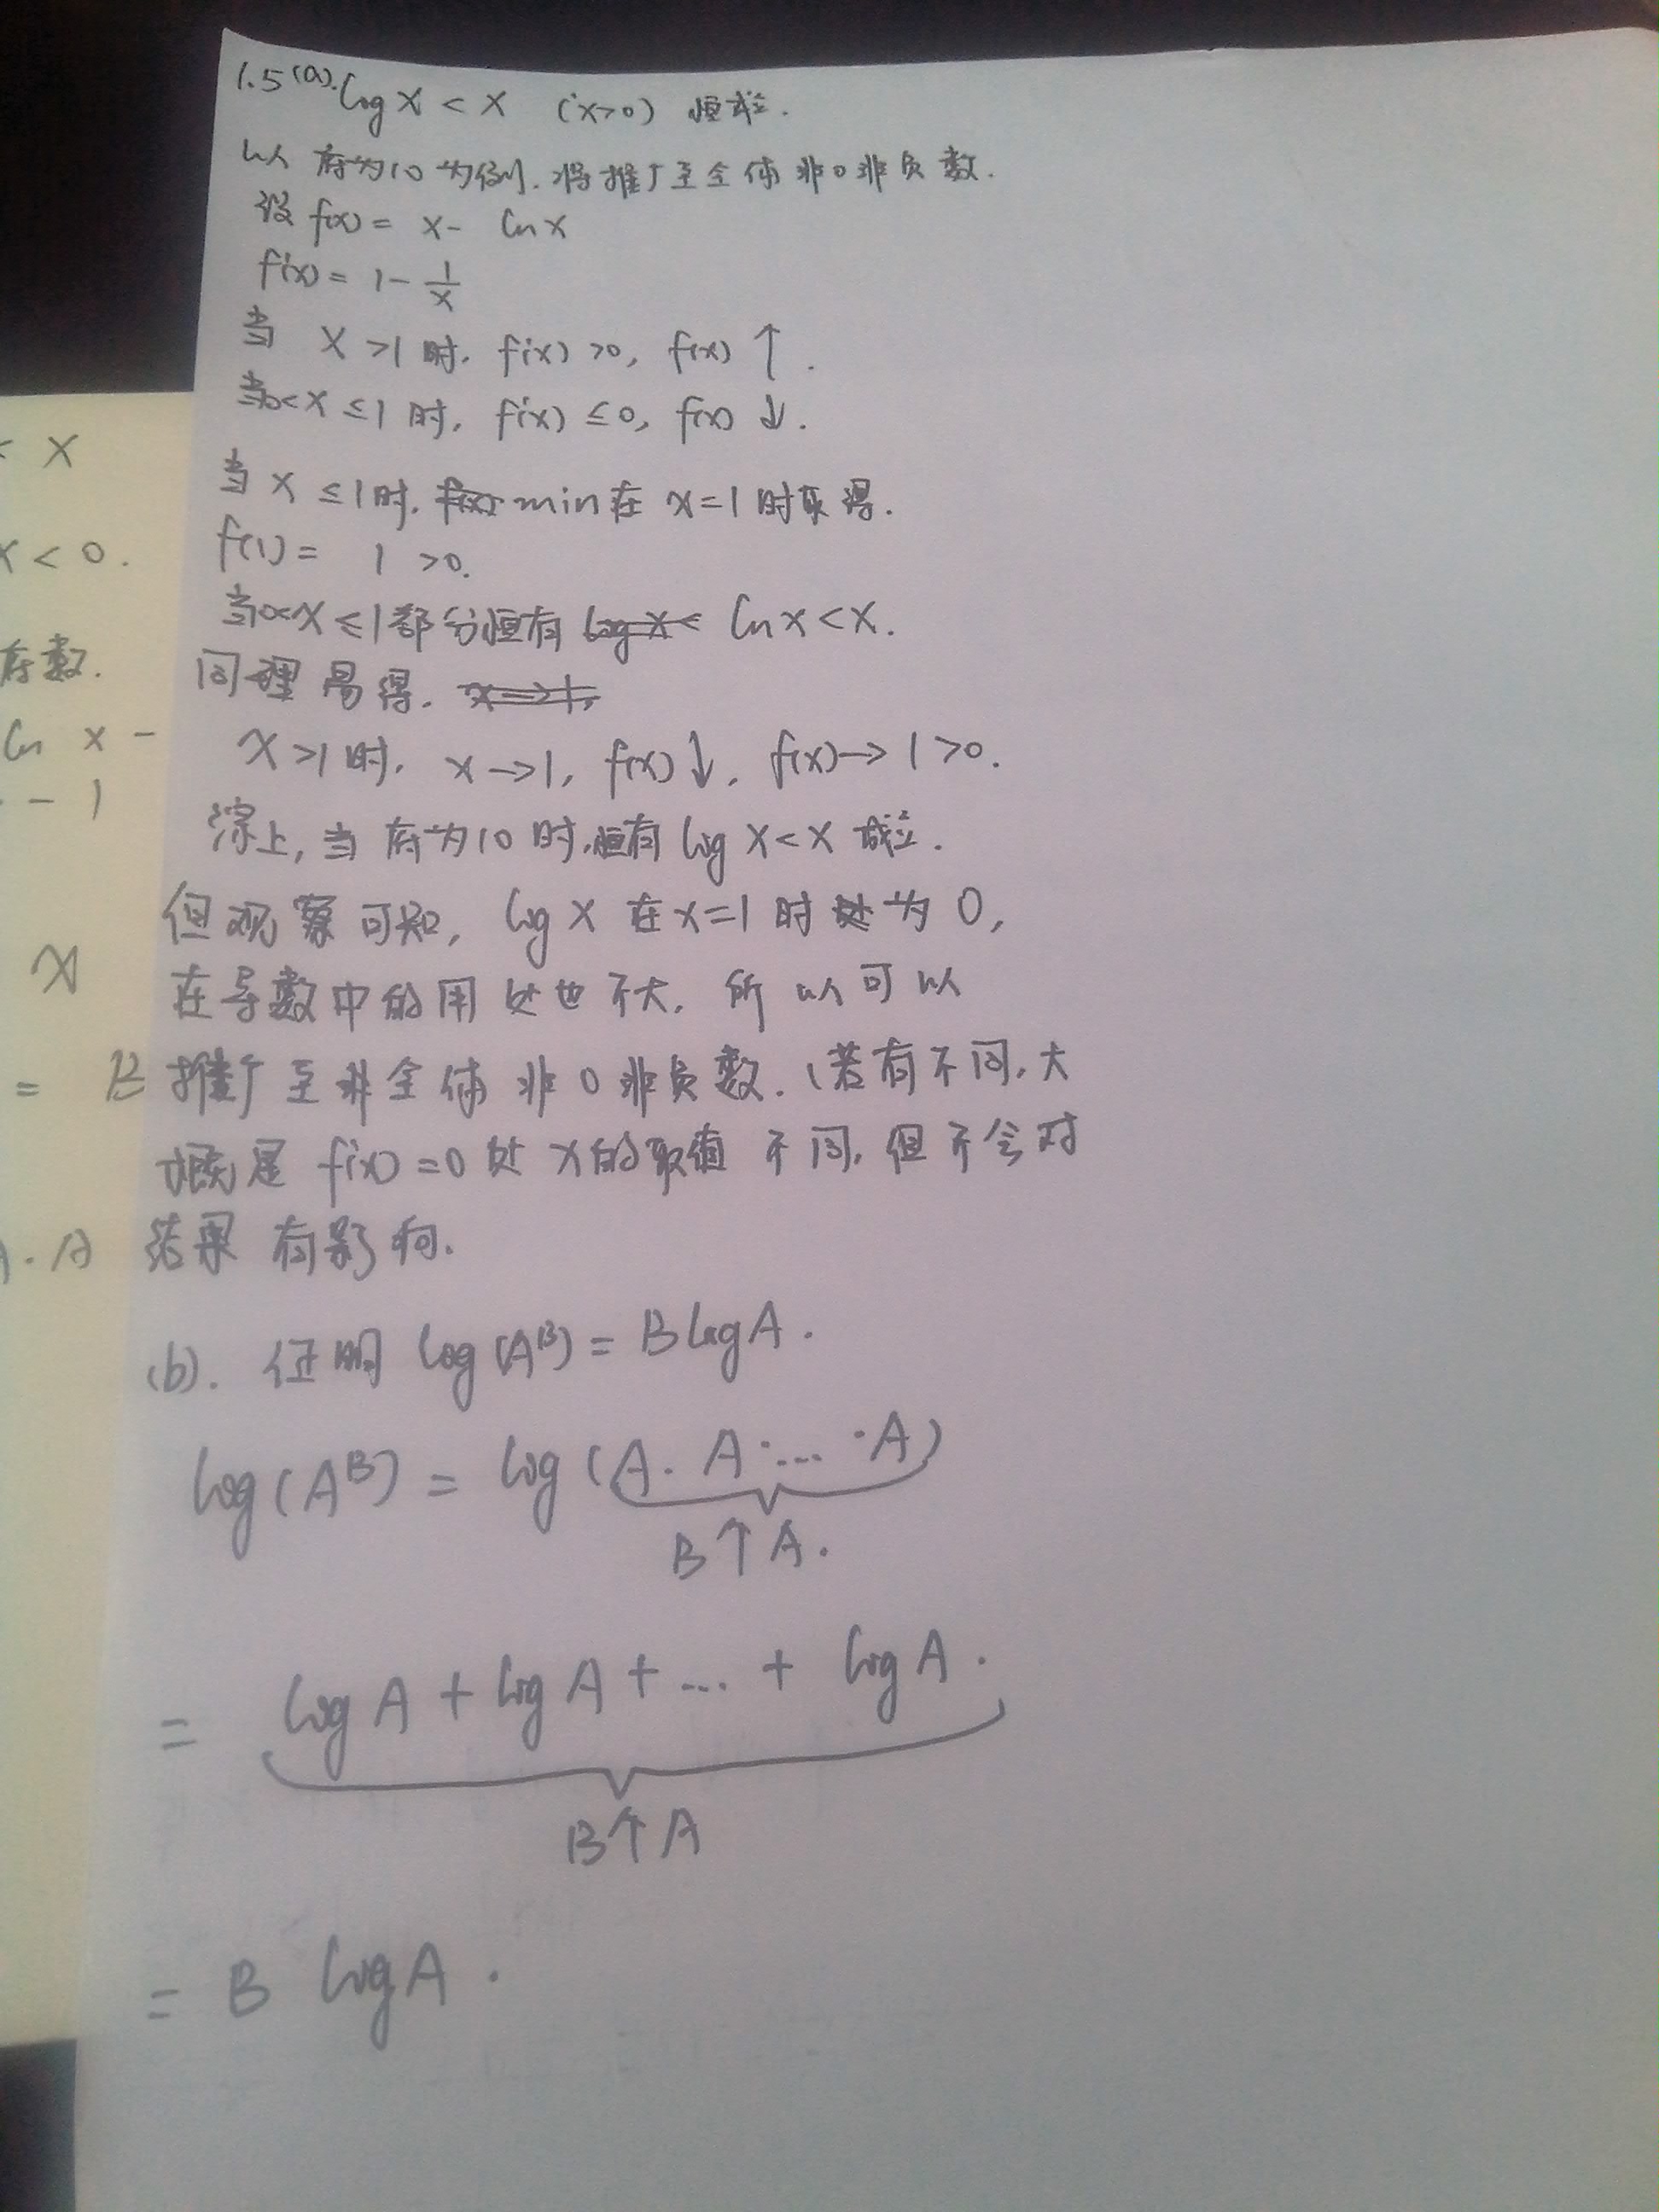 1.5(a). log X < X (x>0) 恒成立.
以底为10为例. 将推广至全体非0非负数.
设 f(x) = x - ln x
f'(x) = 1 - 1/x
当 X >1 时. f'(x) >0, f(x) ↑.
当0< X ≤1 时. f'(x) ≤0, f(x) ↓.
当 X ≤1时. f(x) min在 x=1时取得.
f(1) = 1 >0.
当0<X≤1部分恒有 log x < ln x < x.
同理易得. x→1,
X >1 时. x→1, f(x)↓, f(x)→1 >0.
综上, 当底为10时.恒有 log X < X 成立.
但观察可知, log X 在 x=1 时处为 0,
在导数中的用处也不大. 所以可以
推广至非全体非0非负数. (若有不同. 大
概是 f'(x) =0 处 X的取值不同. 但不会对
结果有影响.
(b). 证明 log(A^B) = B log A.
log(A^B) = log(A. A ·... ·A)
B个A.
= log A + log A + ... + log A.
B个A
= B log A.
< X
X < 0.
底数.
ln x -
- 1
X
= B
A . A